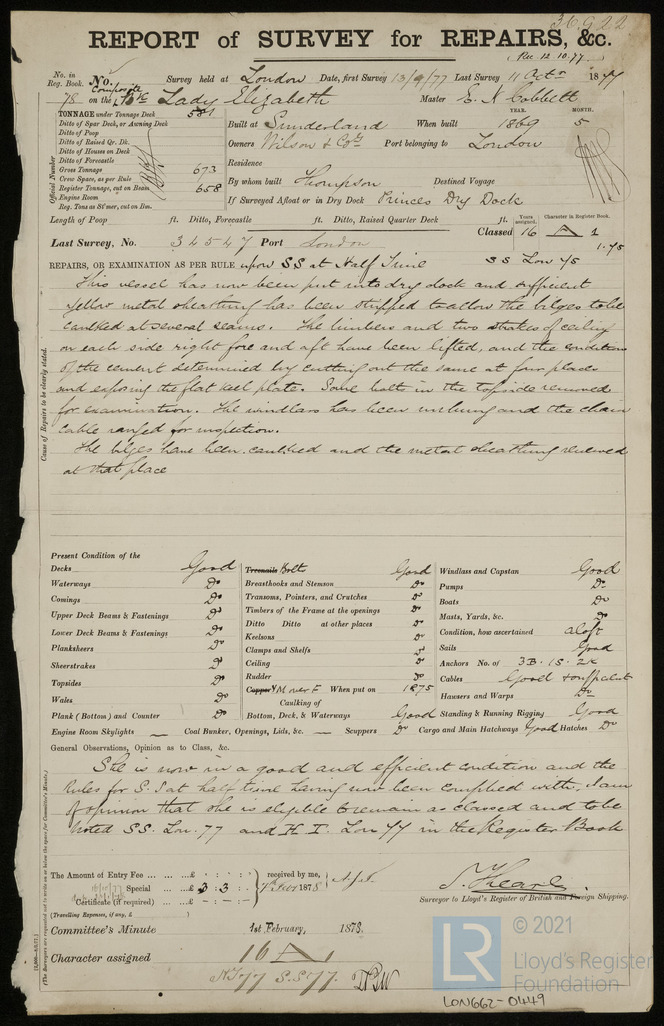 36922
REPORT of SURVEY for REPAIRS, &c.
Rec 12.10.77
No. in Reg. Book. No. Survey held at London Date, first Survey 13/9/77 Last Survey 11 Octr 1877
78 on the Composite Bk Lady Elizabeth Master E. N Cobbett
TONNAGE under Tonnage Deck 581
Ditto of Spar Deck, or Awning Deck
Ditto of Poop
Ditto of Raised Qr. Dk.
Ditto of Houses on Deck
Ditto of Forecastle
Gross Tonnage 673
Crew Space, as per Rule
Register Tonnage, cut on Beam 658
Engine Room
Reg. Tons as St'mer, cut on Bm.
Official Number
YEAR. MONTH.
Built at Sunderland When built 1869 5
Owners Wilson & Co Port belonging to London
Residence
By whom built Thompson Destined Voyage
If Surveyed Afloat or in Dry Dock Princes Dry Dock
Length of Poop ft. Ditto, Forecastle ft. Ditto, Raised Quarter Deck ft.
Years assigned. Character in Register Book.
Classed 16 A 1
1.75
Last Survey, No. 34547 Port London
REPAIRS, OR EXAMINATION AS PER RULE upon SS at Half Time SS Lon 75
This vessel has now been put into dry dock and sufficient
yellow metal sheathing has been stripped to allow the bilges to be
caulked at several seams. The limbers and two strakes of ceiling
on each side right fore and aft have been lifted, and the condition
of the cement determined by cutting out the same at four places
and exposing the flat keel plate. Some bolts in the topside removed
for examination. The windlass has been unhung and the chain
cable ranged for inspection.
The bilges have been caulked and the metal sheathing renewed
at that place
Cause of Repairs to be clearly stated.
Present Condition of the
Decks Good
Waterways Do
Comings Do
Upper Deck Beams & Fastenings Do
Lower Deck Beams & Fastenings Do
Planksheers Do
Sheerstrakes Do
Topsides Do
Wales Do
Plank (Bottom) and Counter Do
Engine Room Skylights — Coal Bunker, Openings, Lids, &c. — Scuppers Do Cargo and Main Hatchways Good Hatches Do
Treenails Bolts Good
Breasthooks and Stemson Do
Transoms, Pointers, and Crutches Do
Timbers of the Frame at the openings Do
Ditto Ditto at other places Do
Keelsons Do
Clamps and Shelfs Do
Ceiling Do
Rudder Do
Copper YM over F When put on 1875
Caulking of
Bottom, Deck, & Waterways Good
Windlass and Capstan Good
Pumps Do
Boats Do
Masts, Yards, &c. Do
Condition, how ascertained aloft
Sails Good
Anchors No. of 3B. 1S. 2K
Cables Good & sufficient
Hawsers and Warps Do
Standing & Running Rigging Good
General Observations, Opinion as to Class, &c.
She is now in a good and efficient condition and the
rules for S.S at half time having now been complied with, I am
of opinion that she is eligible to remain as classed and to be
noted SS. Lon. 77 and H. T. Lon 77 in the Register Book
The Amount of Entry Fee ... ... £ : :
Special ... £ 3 : 3 :
Certificate (if required) ... £ : :
(Travelling Expenses, if any, £ )
received by me, 1878
Surveyor to Lloyd's Register of British and Foreign Shipping.
Committee's Minute 1st February, 1878.
Character assigned 16 A 1
77 S.S 77.
(The Surveyors are requested not to write on or below the space for Committee's Minute.)
© 2021
LR Lloyd's Register Foundation
LON662-0449